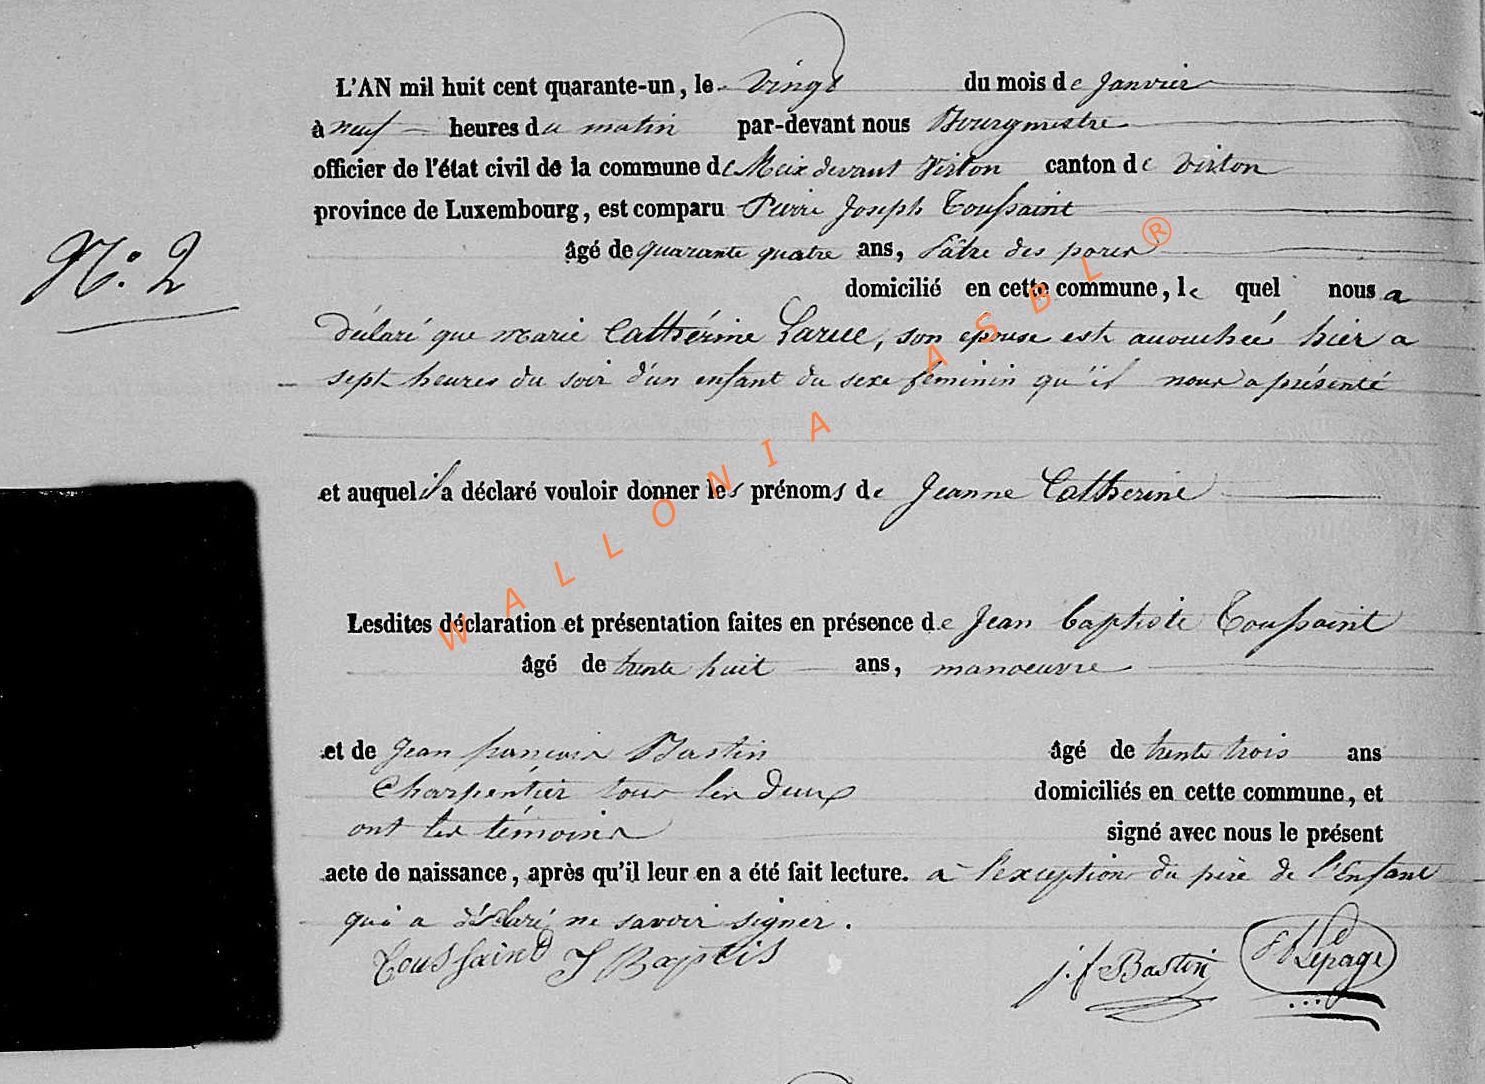 L'AN mil huit cent quarante-un, le vingt du mois de Janvier
à neuf heures du matin par-devant nous Bourgmestre
officier de l'état civil de la commune de Meix devant Virton canton de Virton
province de Luxembourg, est comparu Pierre Joseph Toussaint
âgé de quarante quatre ans, Pâtre des porcs
domicilié en cette commune, le quel nous a
N.º 2
déclaré que Marie Cathérine Laruc, son epouse est accouchée hier a
sept heures du soir d'un enfant du sexe féminin qu'il nous a présenté
et auquel il a déclaré vouloir donner les prénoms de Jeanne Catherine
Lesdites déclaration et présentation faites en présence de Jean baptiste Toussaint
âgé de trente huit ans, manoeuvre
et de Jean françois Bastin âgé de trente trois ans
Charpentier tous les deux domiciliés en cette commune, et
ont les témoins signé avec nous le présent
acte de naissance, après qu'il leur en a été fait lecture. à l'exception du père de l'Enfant
qui a déclaré ne savoir signer.
Toussaint J Baptis j. f Bastin Lepage
WALLONIA ASBL ®